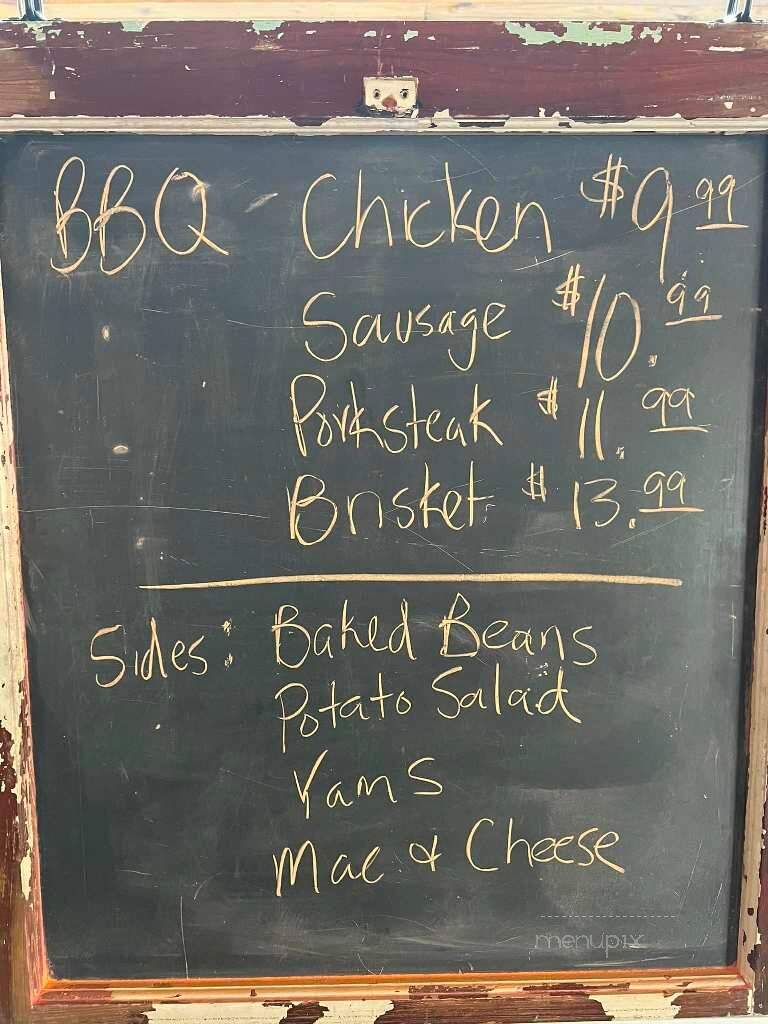 BBQ - Chicken $9.99
Sausage $10.99
Porksteak $11.99
Brisket $13.99
Sides: Baked Beans
Potato Salad
Yams
Mac & Cheese
menupix